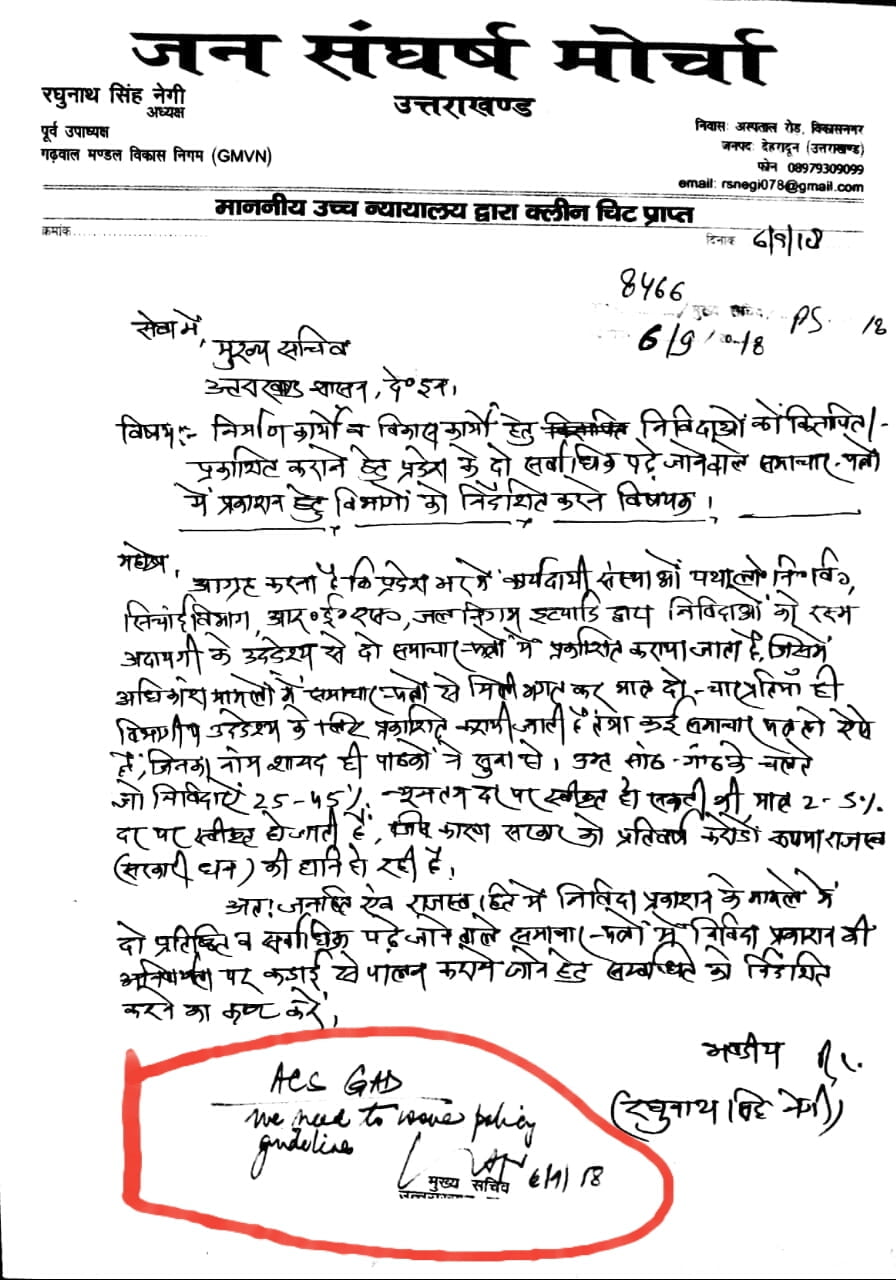 जन संघर्ष मोर्चा
उत्तराखण्ड
रघुनाथ सिंह नेगी
अध्यक्ष
पूर्व उपाध्यक्ष
गढ़वाल मण्डल विकास निगम (GMVN)
निवास: अस्पताल रोड, विकासनगर
जनपद: देहरादून (उत्तराखण्ड)
फोन 08979309099
email: rsnegi078@gmail.com
माननीय उच्च न्यायालय द्वारा क्लीन चिट प्राप्त
क्रमांक
दिनांक 6/9/18
8466
PS /18
6/9/2018
सेवा में,
मुख्य सचिव
उत्तराखण्ड शासन, दे०दून।
विषय:- निर्माण कार्यों व विकास कार्यों हेतु निविदाओं को विज्ञापित/-
प्रकाशित कराने हेतु प्रदेश के दो सर्वाधिक पढ़े जाने वाले समाचार-पत्रों
में प्रकाशन हेतु विभागों को निर्देशित करने विषयक।
महोदय,
आग्रह करना है कि प्रदेश भर में कार्यदायी संस्थाओं यथा लो०नि०वि०,
सिंचाई विभाग, आर०ई०एस०, जल निगम इत्यादि द्वारा निविदाओं को रस्म
अदायगी के उद्देश्य से दो समाचार-पत्रों में प्रकाशित कराया जाता है, जिसमें
अधिकांश मामलों में समाचार-पत्रों से मिली भगत कर मात्र दो-चार प्रतियाँ ही
विभागीय उद्देश्य के लिए प्रकाशित करायी जाती हैं तथा कई समाचार पत्र तो ऐसे
हैं, जिनका नाम शायद ही पाठकों ने सुना हो। उक्त सांठ-गांठ के चलते
जो निविदाएं 25-45% न्यूनतम दर पर स्वीकृत हो सकती थी मात्र 2-5%
दर पर स्वीकृत हो जाती हैं, जिस कारण सरकार को प्रतिवर्ष करोड़ों रूपया राजस्व
(सरकारी धन) की हानि हो रही है।
अतः जनहित एवं राजस्व हित में निविदा प्रकाशन के मामले में
दो प्रतिष्ठित व सर्वाधिक पढ़े जाने वाले समाचार-पत्रों में निविदा प्रकाशन की
अनिवार्यता पर कड़ाई से पालन कराये जाने हेतु सम्बन्धित को निर्देशित
करने का कष्ट करें।
भवदीय
(रघुनाथ सिंह नेगी)
ACS GAD
We need to issue policy
guideline
6/9/18
मुख्य सचिव
उत्तराखण्ड